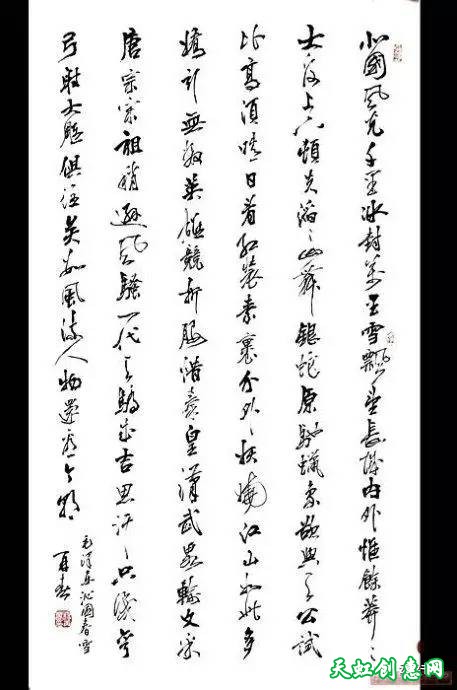 北國風光千里冰封萬里雪飄望長城內外惟餘莽〻
大河上下頓失滔〻山舞銀蛇原馳蠟象欲與天公試
比高須晴日看紅裝素裹分外妖嬈江山如此多
嬌引無數英雄競折腰惜秦皇漢武略輸文采
唐宗宋祖稍遜風騷一代天驕成吉思汗只識彎
弓射大雕俱往矣數風流人物還看今朝
毛澤東沁園春雪
天虹创意网